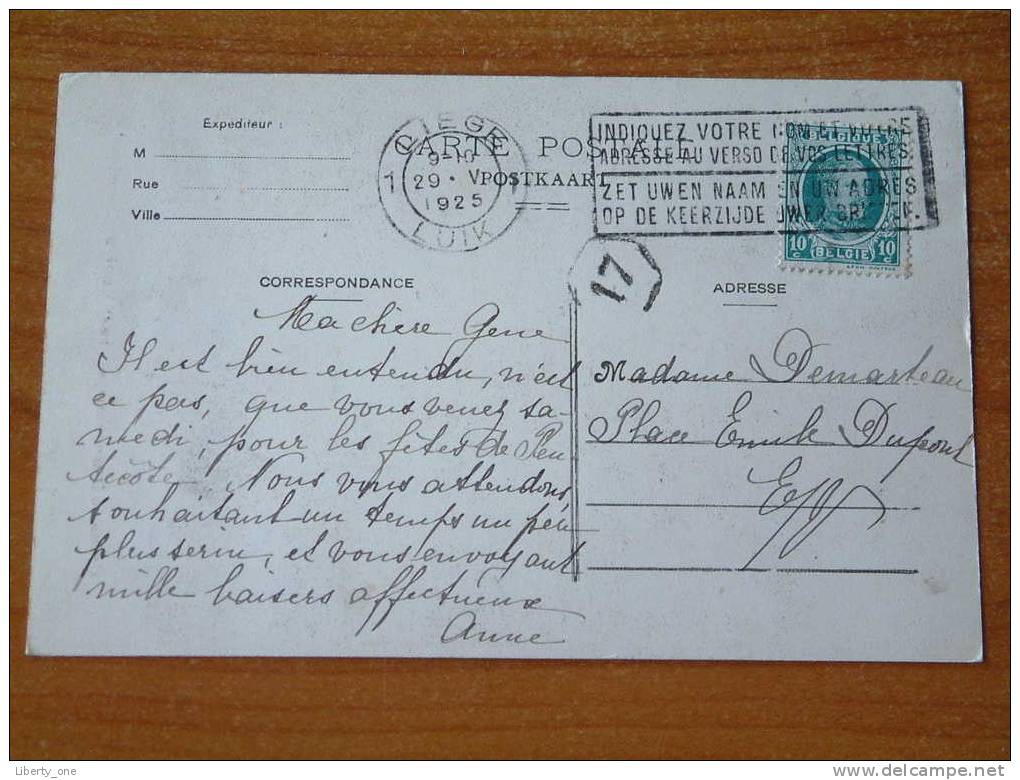 Expediteur :
M
Rue
Ville
CARTE POSTALE
POSTKAART
LIEGE
1 1
9-10
29 · V
1925
LUIK
INDIQUEZ VOTRE NOM ET VOTRE
ADRESSE AU VERSO DE VOS LETTRES.
ZET UWEN NAAM EN UW ADRES
OP DE KEERZIJDE UWER BRIEVEN.
BELGIQUE
10 c BELGIE 10 c
17
CORRESPONDANCE
ADRESSE
Ma chère Gene
Il est bien entendu, n'est
ce pas, que vous venez sa-
medi, pour les fêtes de Pen
tecôte. Nous vous attendons,
souhaitant un temps un peu
plus serin, et vous envoyant
mille baisers affectueux
Anne
Madame Demarteau
Place Emile Dupont
E/V
Liberty_one
www.delcampe.net